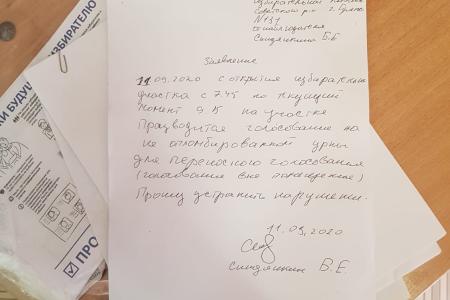 избирательной
от наблюдателя
В.Е
Заявление
11.09.2020 с открытия избирательн
участка с 7.45 по текущий
момент на участке
Производится голосование на
не опломбированной урны
для переносного голосования
(голосование вне помещения)
Прошу устранить нарушени.
11.09.2020
Синдянкин В.Е
ИЗБИРАТЕЛЮ
БУДУЩ
ПРО